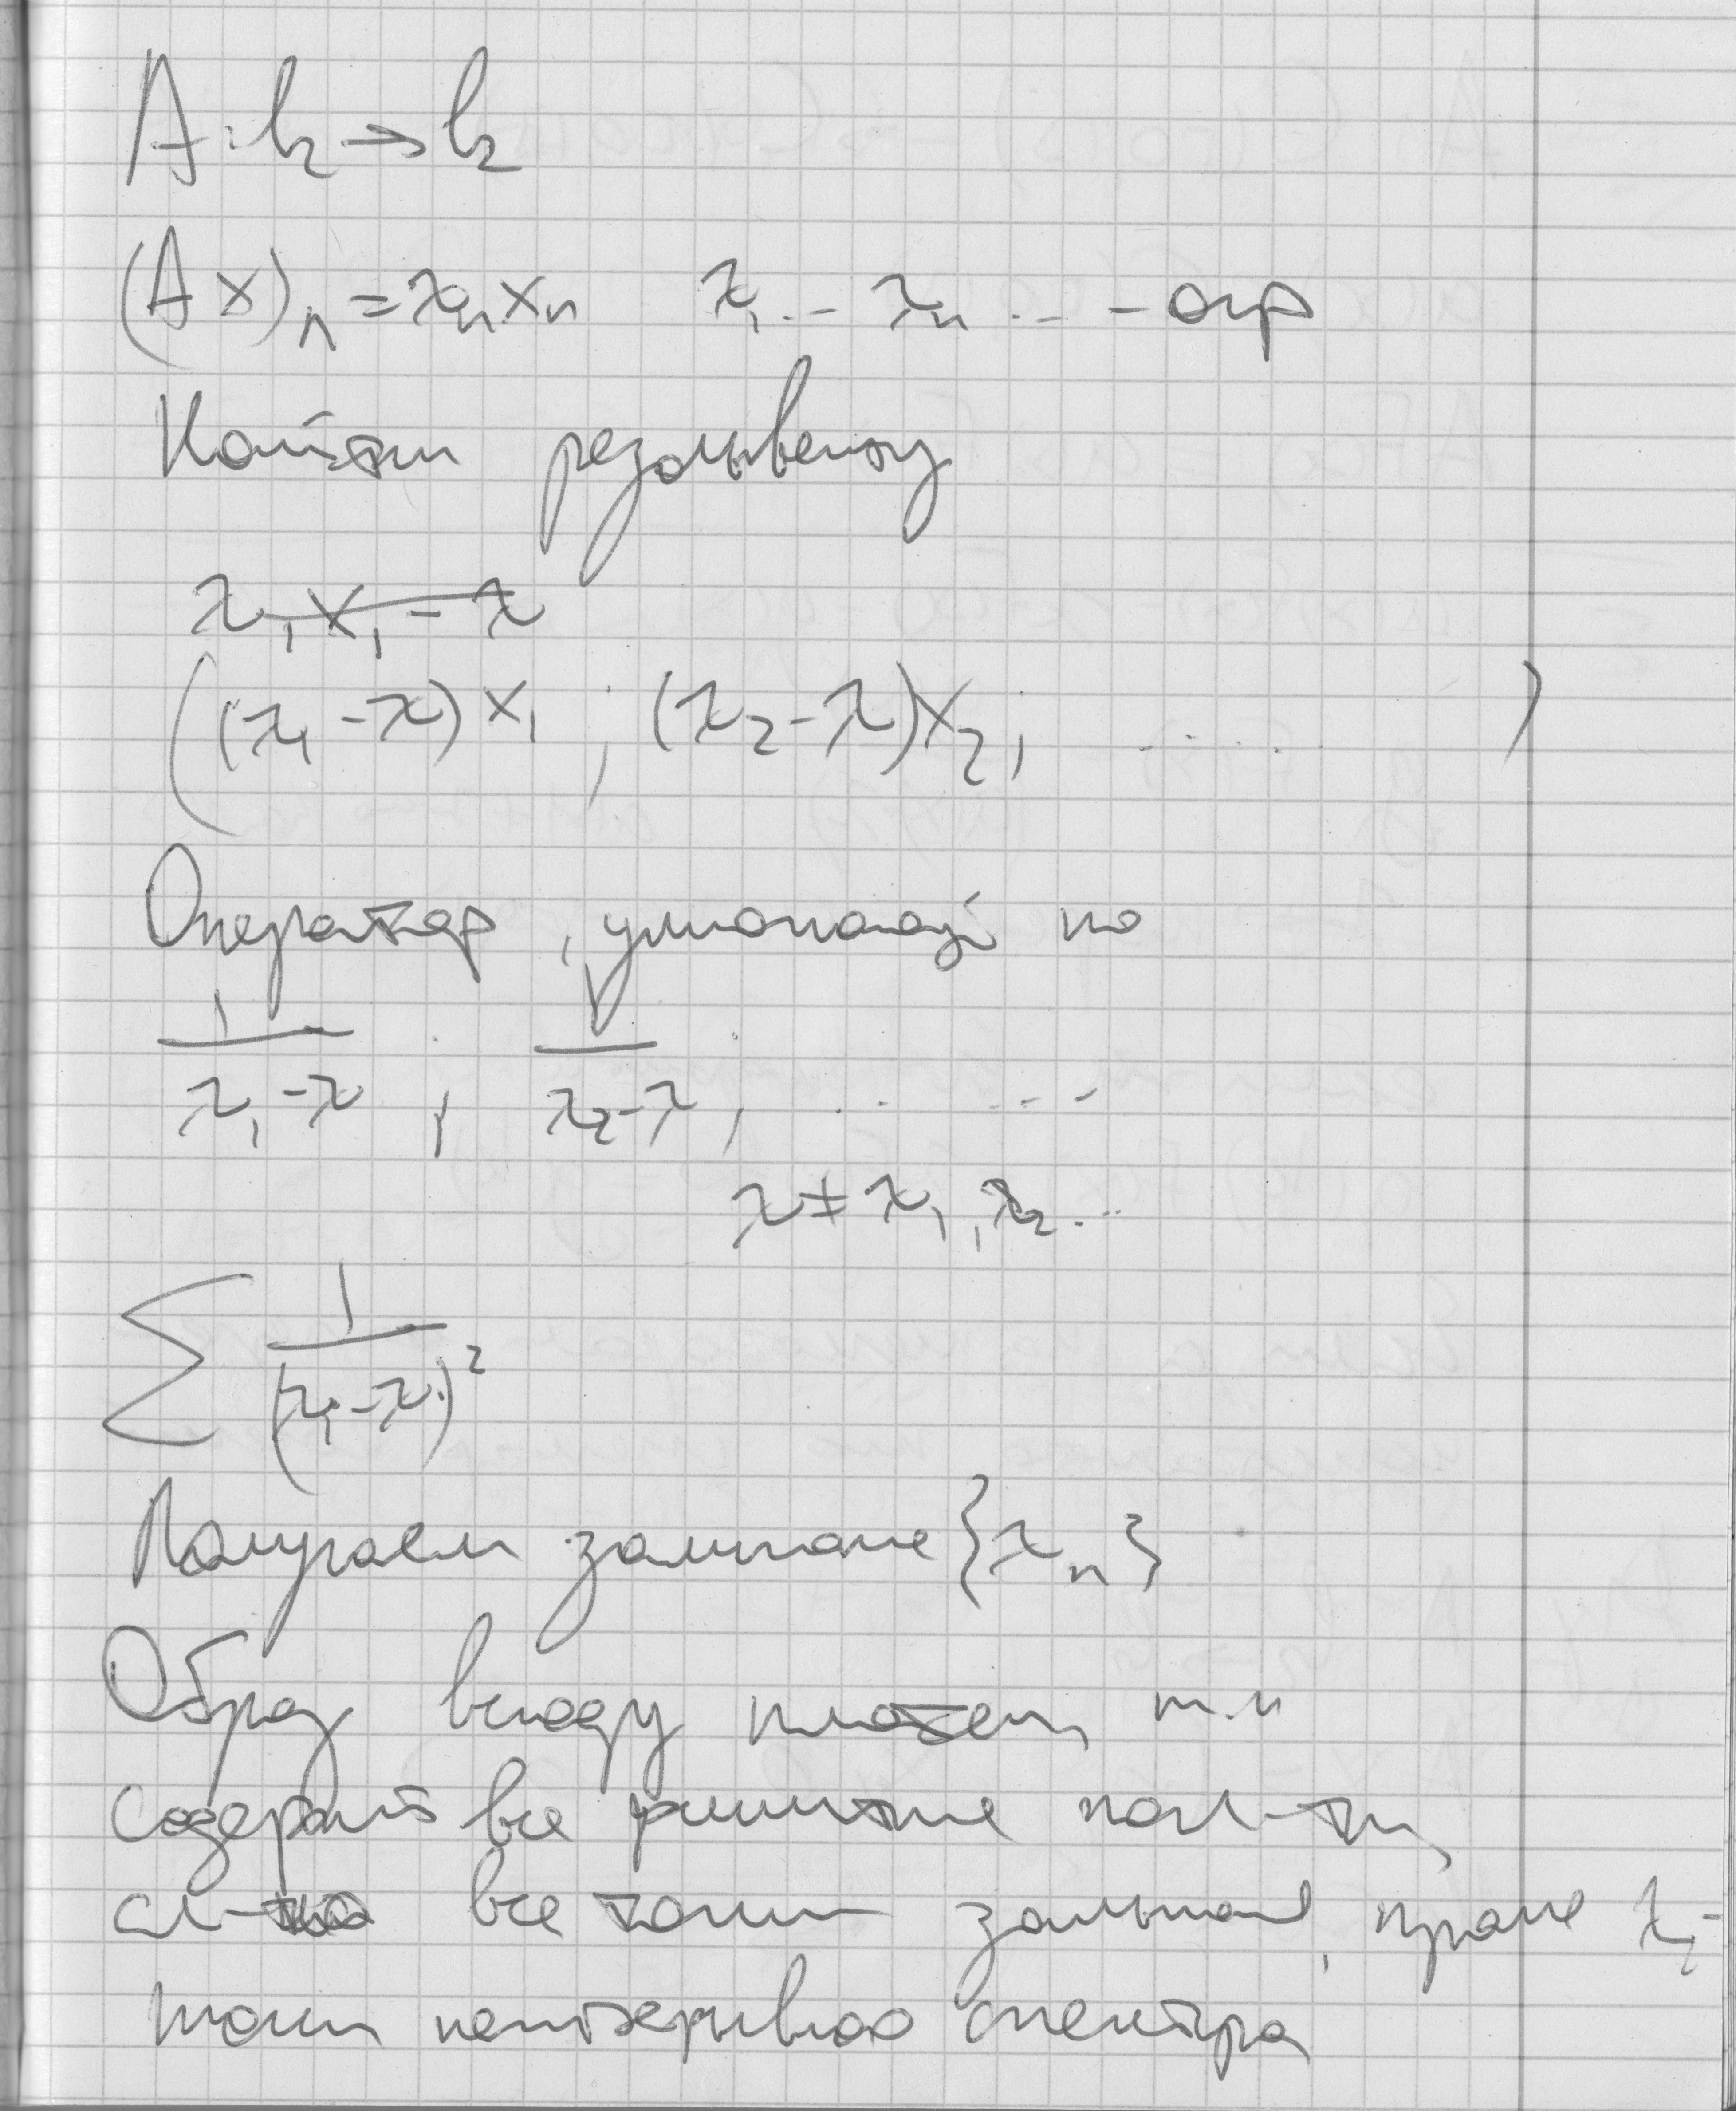 A: l₂ → l₂
(Ax)ₙ = λₙxₙ   λ₁ ... λₙ ... - огр
Найти резольвенту
λ₁x₁ - λ
((λ₁ - λ)x₁ ; (λ₂ - λ)x₂ ; ..... )
Оператор, умножающий на
1/(λ₁ - λ) ; 1/(λ₂ - λ) , ......
λ ≠ λ₁, λ₂ ...
∑ 1/(λᵢ - λ)²
Получаем замыкание {λₙ}
Образ всюду плотен, т.к
содержит все финитные посл-ти,
сл-но все точки замыкания, кроме λᵢ -
точки непрерывного спектра